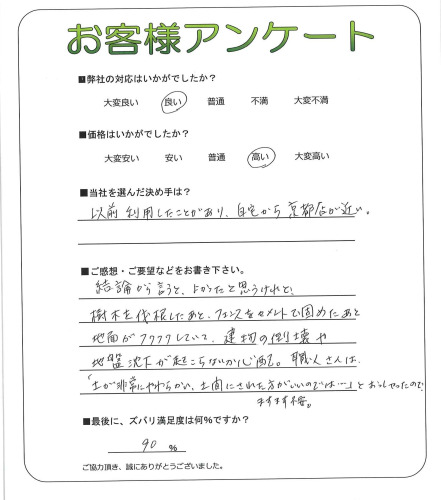 お客様アンケート
■弊社の対応はいかがでしたか？
大変良い　良い　普通　不満　大変不満
■価格はいかがでしたか？
大変安い　安い　普通　高い　大変高い
■当社を選んだ決め手は？
以前 利用したことがあり、自宅から 京都店が近い。
■ご感想・ご要望などをお書き下さい。
結論から言うと、よかったと思うけれど、
樹木を伐根したあと、フェンスをセメントで固めたあと
地面がフワフワしていて、建物の倒壊や
地盤沈下が起こらないか心配。職人さんは、
「土が非常にやわらかい、土間にされた方がいいのでは…」とおっしゃったので
ますます不安。
■最後に、ズバリ満足度は何%ですか？
90 %
ご協力頂き、誠にありがとうございました。